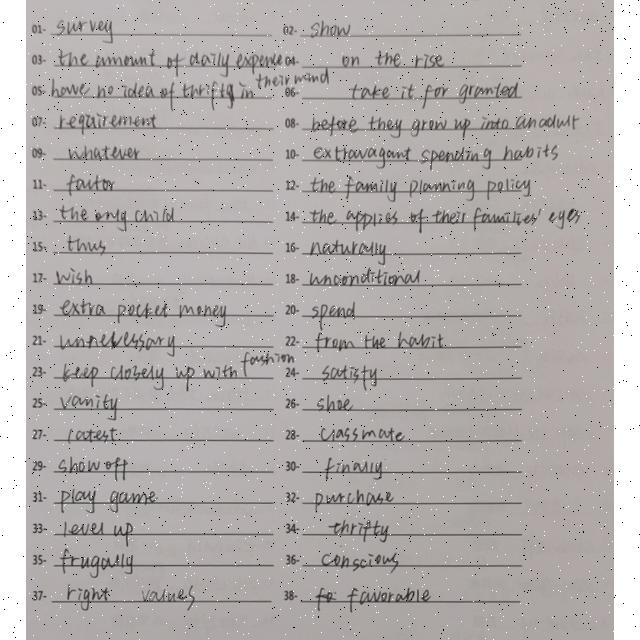 01- survey 02- show
03- the amount of daily expence 04- on the rise
05- have no idea of thrifty in their mind 06- take it for granted
07- requirement 08- before they grow up into an adult
09- whatever 10- extravagant spending habits
11- factor 12- the family planning policy
13- the only child 14- the apples of their families' eyes
15- thus 16- naturally
17- wish 18- unconditional
19- extra pocket money 20- spend
21- unnecessary 22- from the habit
23- keep closely up with fashion 24- satisty
25- vanity 26- shoe
27- latest 28- classmate
29- show off 30- finally
31- play game 32- purchase
33- level up 34- thrifty
35- frugally 36- conscious
37- right values 38- favorable